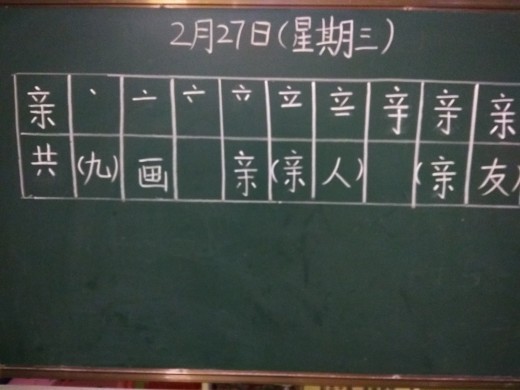 2月27日(星期三)
亲 丶 亠 六 立 亲
共 (九) 画 亲 (亲 人) (亲 友)